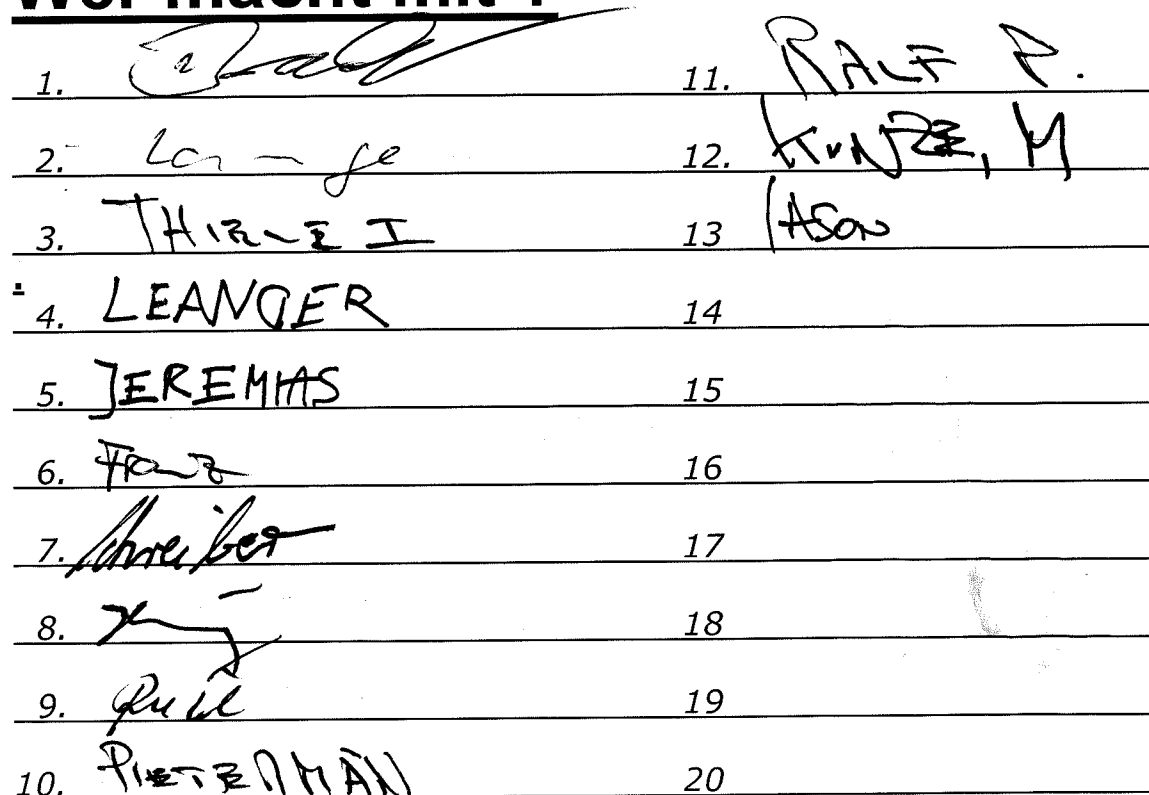 Wer macht mit ?
1.
2. Lange
3. THIELE I
4. LEANDER
5. JEREMIAS
6. Franz
7. Schreiber
8.
9.
10.
11. RALF P.
12. KUNZE, M
13 JASON
14
15
16
17
18
19
20